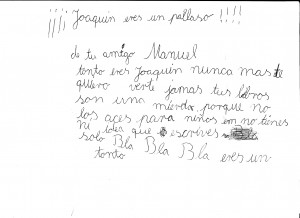 ¡¡¡¡ Joaquin eres un pallaso !!!!
de tu amigo Manuel
tonto eres Joaquin nunca mas te
quiero verte jamas tus libros
son una mierda porque no
los aces para niños no tienes
ni idea que escrives
solo Bla Bla Bla eres un
tonto